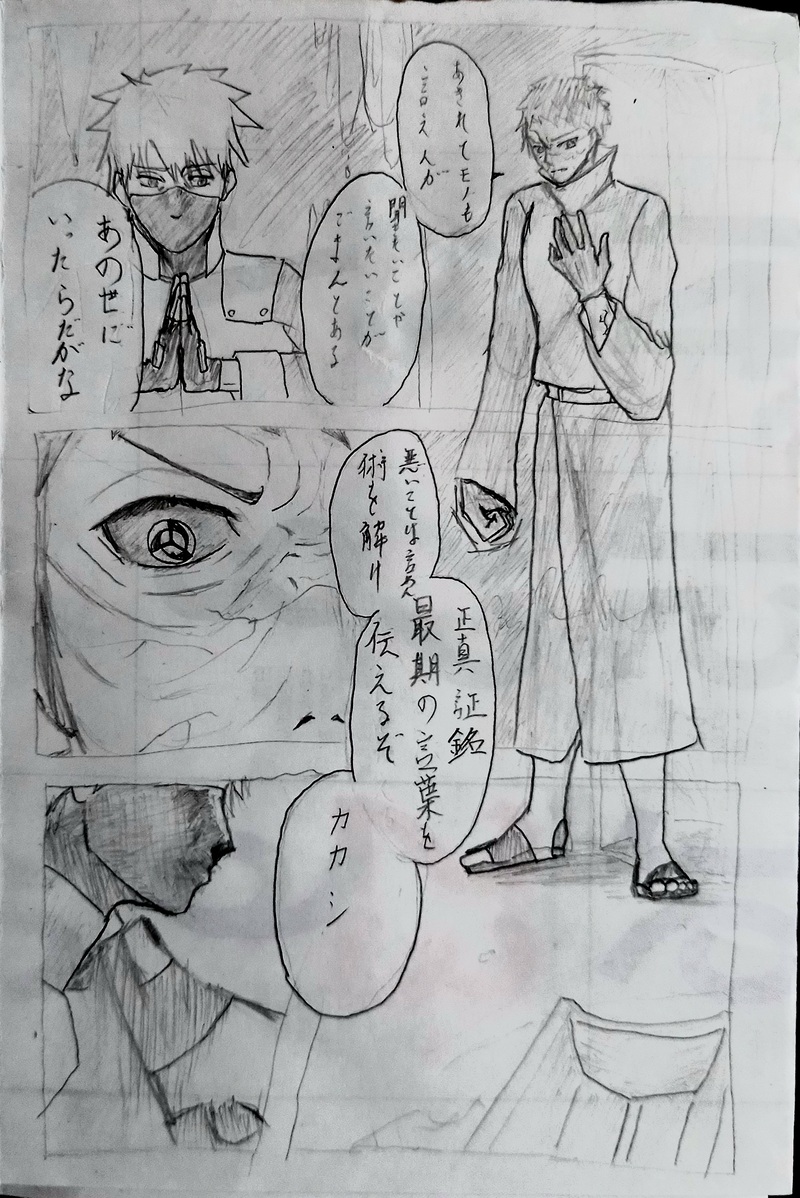 あきれてモノも
言えんが
聞きたいことや
言いたいことが
ごまんとある
あの世に
いったらだがな
悪いことは言わん
術を解け
正真証銘
最期の言葉を
伝えるぞ
カカシ